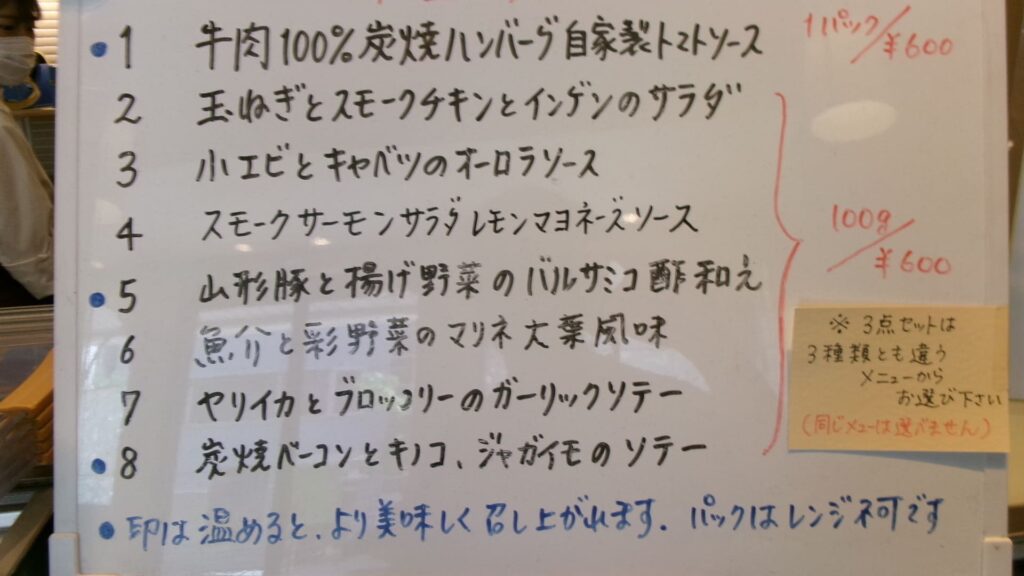 ● 1 牛肉100%炭焼ハンバーグ自家製トマトソース 1パック/¥600
2 玉ねぎとスモークチキンとインゲンのサラダ
3 小エビとキャベツのオーロラソース
4 スモークサーモンサラダレモンマヨネーズソース
100g/¥600
● 5 山形豚と揚げ野菜のバルサミコ酢和え
6 魚介と彩野菜のマリネ大葉風味
7 ヤリイカとブロッコリーのガーリックソテー
● 8 炭焼ベーコンとキノコ、ジャガイモのソテー
※3点セットは
3種類とも違う
メニューから
お選び下さい
(同じメニューは選べません)
●印は温めると、より美味しく召し上がれます. パックはレンジ不可です